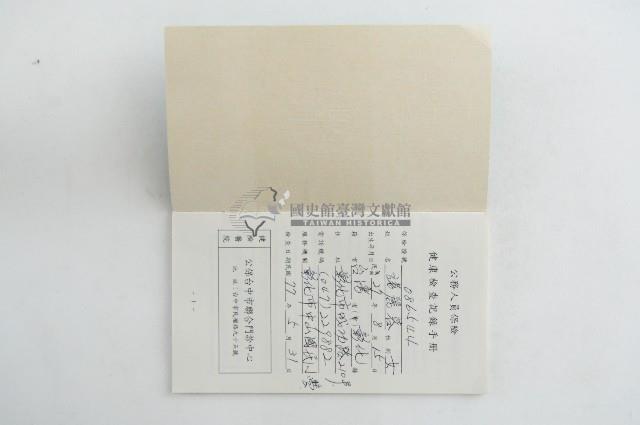 公務人員保險
健康檢查記錄手冊
保險證號 086544
姓名 張麗蓉 性別 女
出生年月日 民國 29 年 8 月 15 日
籍貫 台灣 省(市) 彰化 縣
住址 彰化市成功路210号
電話號碼 (047)229882
服務機關 彰化市中山國民小學
檢查日期 民國 77 年 5 月 31 日
健檢醫院
公保台中市聯合門診中心
地址:台中市民權路九十五號
-1-
國史館臺灣文獻館
TAIWAN HISTORICA